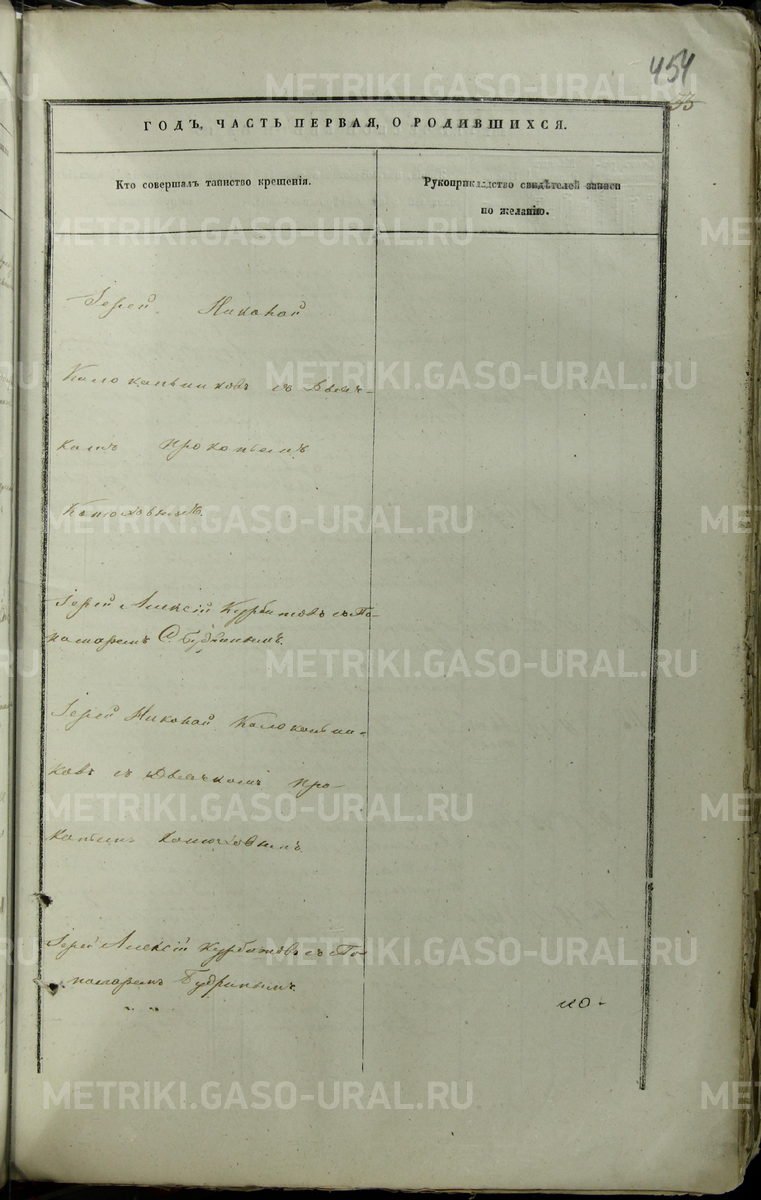 454
55
ГОДЪ, ЧАСТЬ ПЕРВАЯ, О РОДИВШИХСЯ.
Кто совершалъ таинство крещенія.
Рукоприкладство свидѣтелей записи
по желанію.
Іерей Николай
Колокольниковъ съ Дьяч-
комъ Прокопьемъ
Конюховымъ.
Іерей Алексій Курбатовъ съ По-
намаремъ С. Будринымъ.
Іерей Николай Колокольни-
ковъ съ Дьячкомъ Про-
копьемъ Конюховымъ.
Іерей Алексій Курбатовъ съ По-
намаремъ Будринымъ.
METRIKI.GASO-URAL.RU